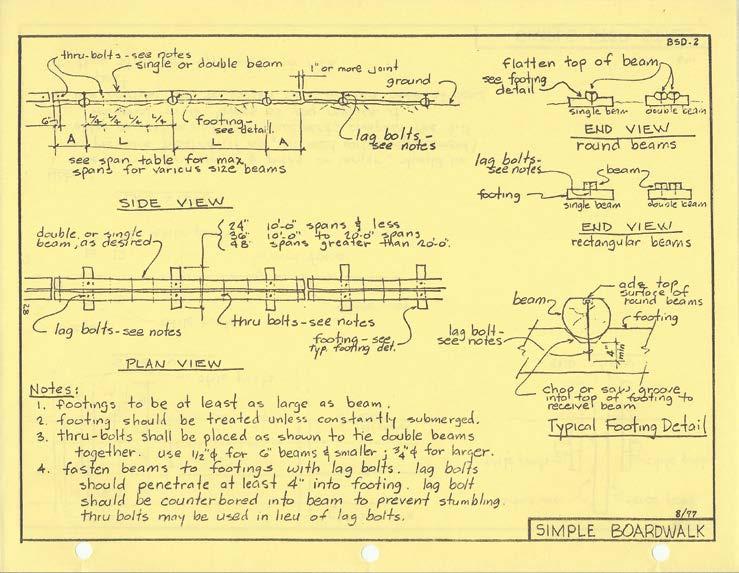 BSD-2
thru-bolts-see notes
single or double beam
1" or more joint
ground
6"
A
1/4 1/4 1/4 1/4
L
L
A
footing-
see detail.
lag bolts-
see notes
see span table for max,
spans for various size beams
SIDE VIEW
flatten top of beam
see footing
detail
single beam
double beam
END VIEW
round beams
lag bolts-
see notes
beam
footing
single beam
double beam
END VIEW
rectangular beams
double, or single
beam, as desired
24" 10'-0" spans & less
36" 10'-0" to 20'-0" spans
48" spans greater than 20'-0".
lag bolts-see notes
thru bolts-see notes
footing-see
typ. footing det.
PLAN VIEW
adz top
surface of
round beams
beam
footing
lag bolt-
see notes
4"
min
chop or saw groove
into top of footing to
receive beam
Typical Footing Detail
Notes:
1. footings to be at least as large as beam.
2. footing should be treated unless constantly submerged.
3. thru-bolts shall be placed as shown to tie double beams
together. use 1/2"¢ for 6" beams & smaller; 3/4"¢ for larger.
4. fasten beams to footings with lag bolts. lag bolts
should penetrate at least 4" into footing. lag bolt
should be counterbored into beam to prevent stumbling.
Thru bolts may be used in lieu of lag bolts.
8/77
SIMPLE BOARDWALK